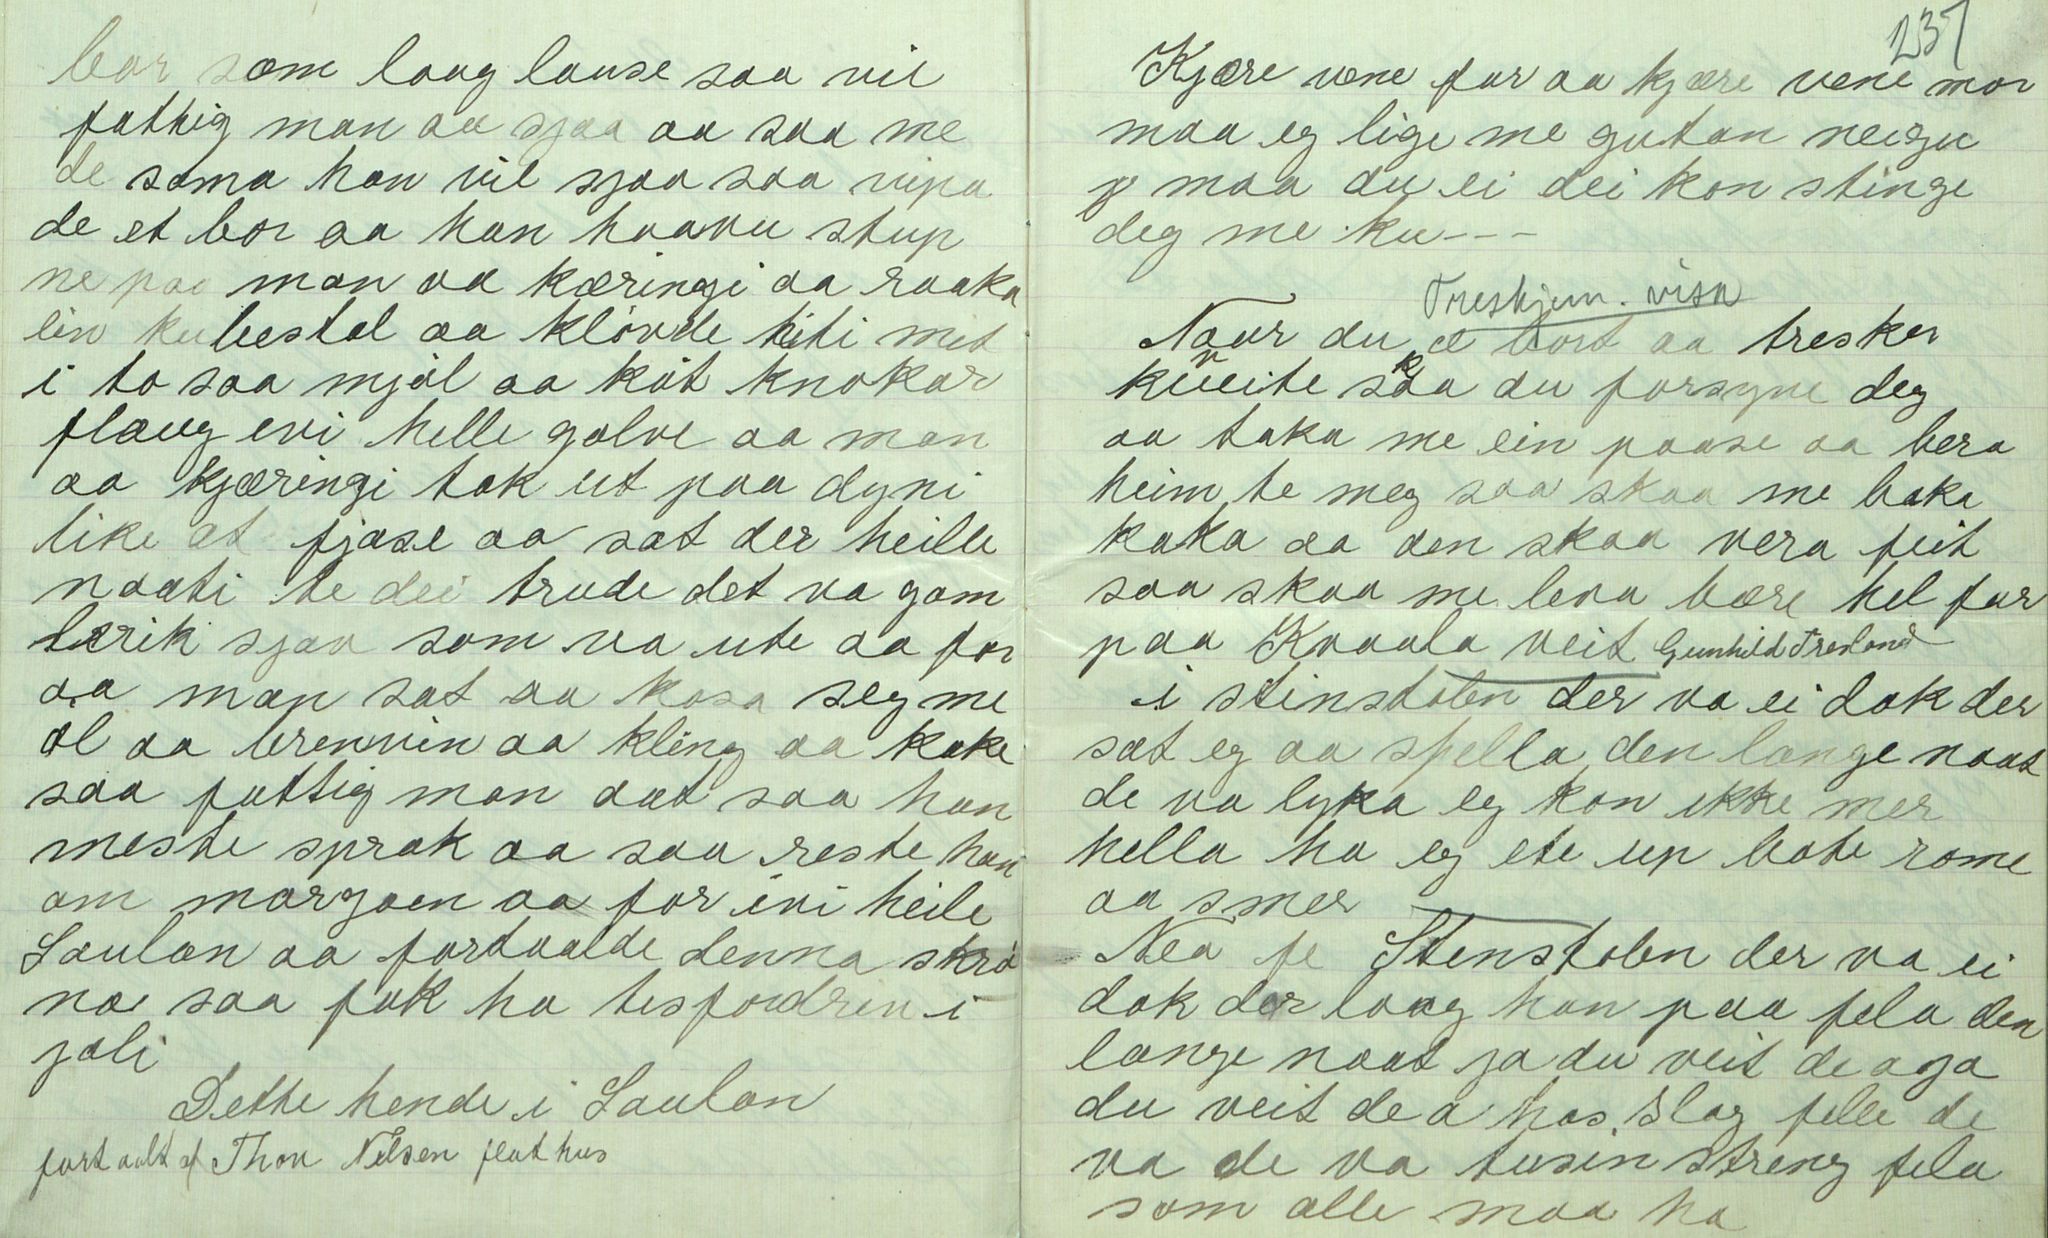 bor som laag lause saa vil
fathig man aa sjaa aa saa me
de sama han vil sjaa saa vipa
de et bor aa han haavu stup
ne paa man aa kæringi aa raaka
ein kubestol aa klövde hiti mit
i to saa mjöl aa köt knokar
flaug evi helle golve aa man
aa kjæringi tok ut paa dyni
like at fjøse aa sat der heille
naati te dei trude det va gam
lærik sjøv som va ute aa for
aa man sat aa kosa seg me
öl aa brenvin aa kling aa kake
saa fattig man aat saa han
meste sprak aa saa reste han
om morgoen aa for ivi heile
Laulan aa fortaalde denna skrö
na saa fuk ha tisfordrin i
joli
Dette hende i Laulan
fortaalt af Thon Nilsen flathus
237
Kjære vene far aa kjære vene mor
maa eg lige me gutan neigu
maa du ei dei kon stinge
deg me ku---
Treskjem. visa
Naar du æ bort aa tresker
kveite skaa du forsyne deg
aa taka me ein paase aa bera
heim te meg saa skaa me baka
kaka aa den skaa vera feit
saa skaa me leva bære hel far
paa Kvaala veit Gunhild Trædland
i stinstolen der va ei dok der
sat eg aa spella den lange naat
de va lyka eg kon ikke mer
hella ha eg ete up bote rome
aa smer
Nea fe Stenstolen der va ei
dok der laag han paa fela den
lange naat ja du veit de aga
du veit de a has slag felle de
va de va tusin streng fela
som alle maa ha